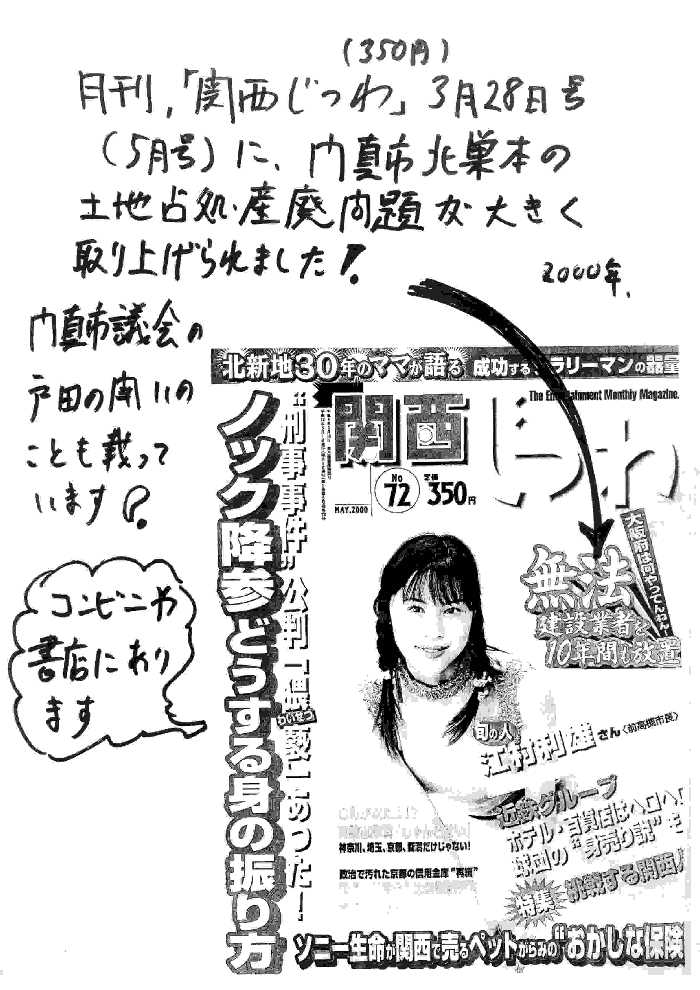 (350円)
月刊,「関西じつわ」3月28日号
(5月号)に、門真市北巣本の
土地占処・産廃問題が大きく
取り上げられました!
2000年.
門真市議会の
戸田の闘いの
ことも載って
います!
コンビニや
書店にあり
ます
北新地30年のママが語る 成功するサラリーマンの器量
The Entertainment Monthly Magazine.
関西じつわ
No
72
定価
350円
MAY.2000
“刑事事件”公判「猥褻」あった!
わいせつ
ノック降参どうする身の振り方
大阪府は何やってんねん
無法
建設業者を
10年間も放置
旬の人
江村利雄さん〈前高槻市長〉
近鉄グループ
ホテル・百貨店はヘロヘロ
球団の“身売り説”も
特集
挑戦する関西人
神奈川、埼玉、京都、新潟だけじゃない!
政治で汚れた京都の信用金庫“再編”
ソニー生命が関西で売るペットがらみの“おかしな保険